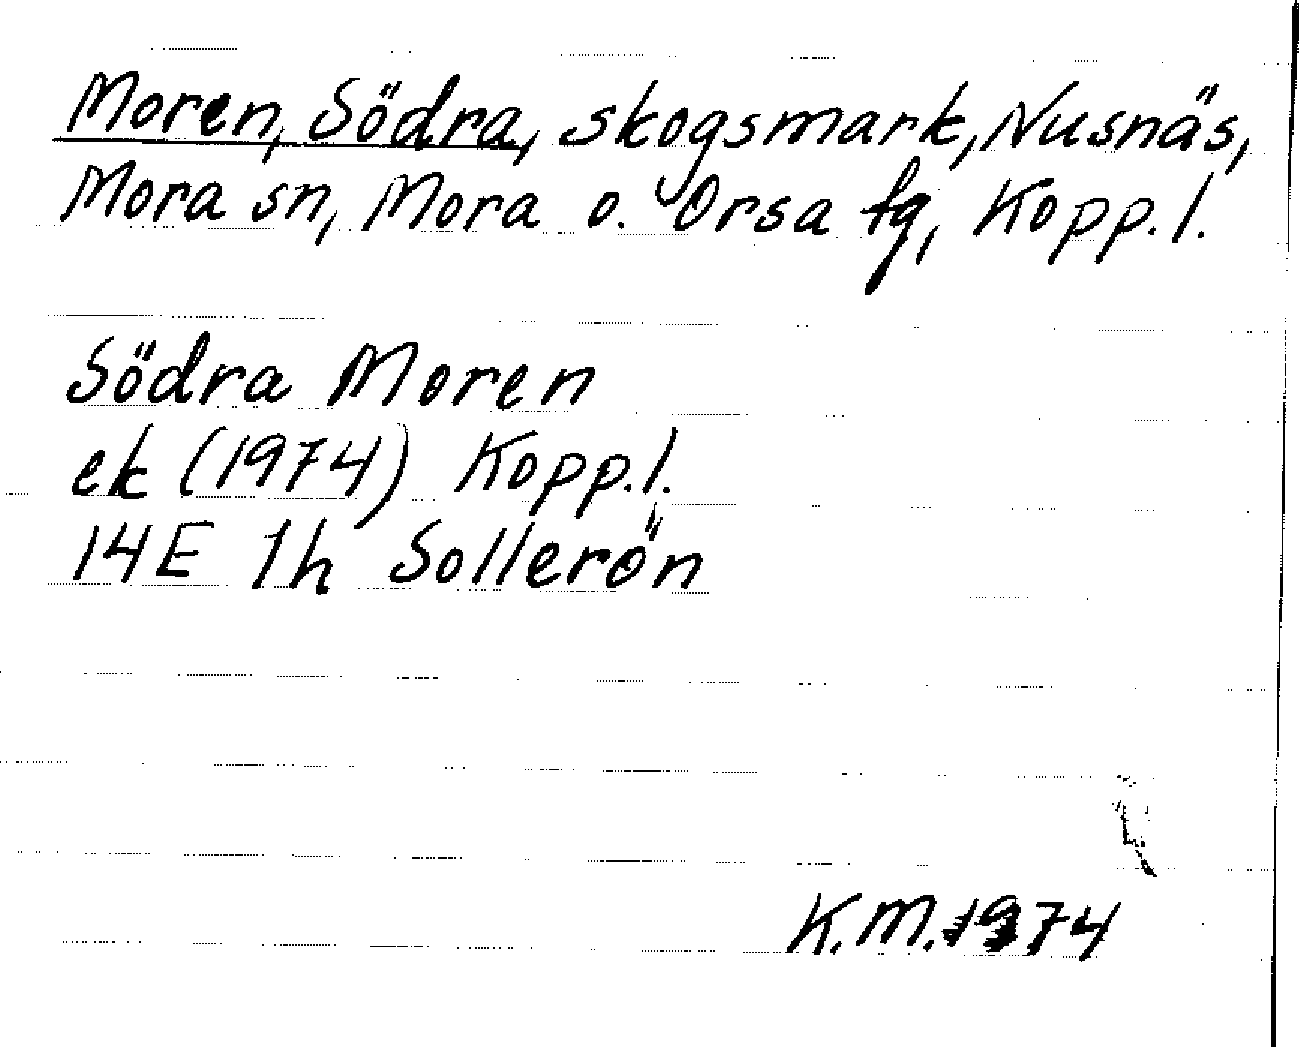 Moren, Södra, skogsmark, Nusnäs,
Mora sn, Mora o. Orsa fg, Kopp.l.
Södra Moren
ek (1974) Kopp.l.
14E 1h Sollerön
K.M. 1974